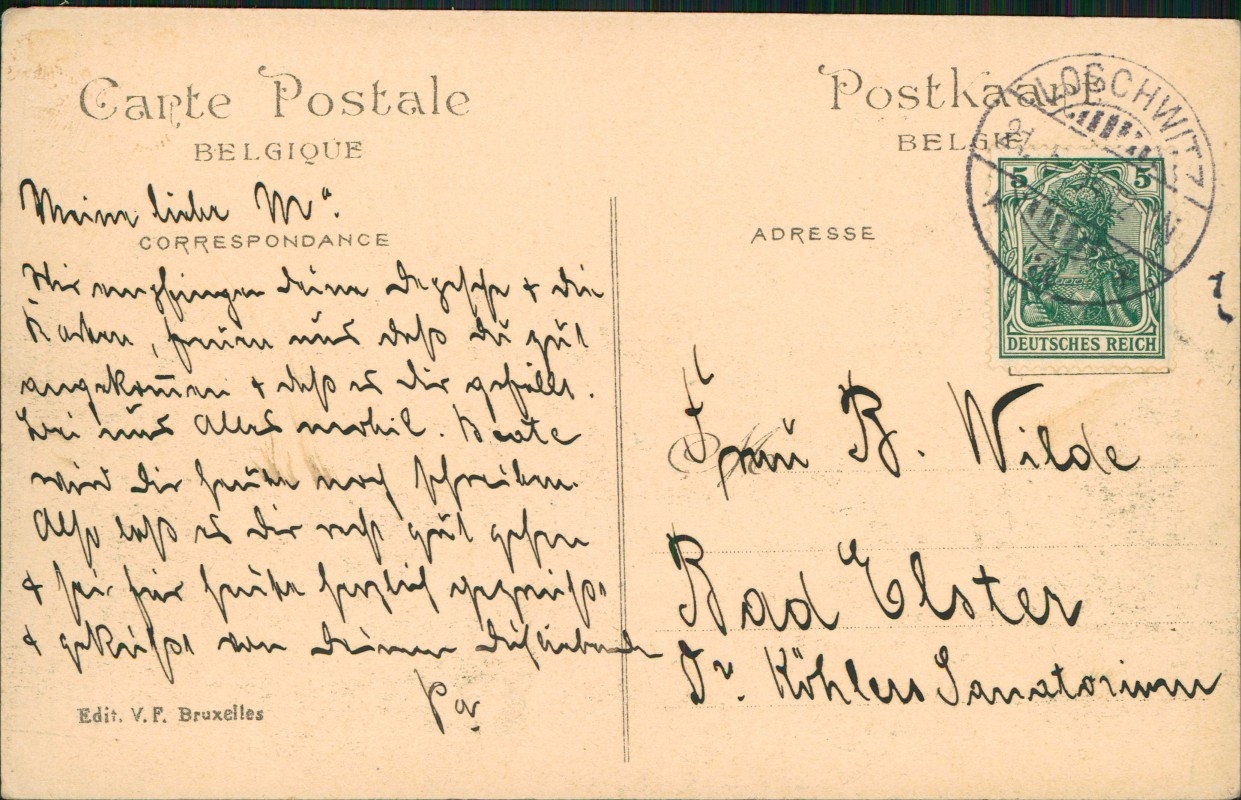 Carte Postale
BELGIQUE
Postkaart
BELGIE
LOSCHWITZ
5 5
DEUTSCHES REICH
CORRESPONDANCE
ADRESSE
Meine liebe M".
Wir empfingen deine Depesche + die
Karten, freuen uns daß du gut
angekom̅en + daß es dir gefällt.
Bei uns Alles mobil. Beate
wird dir heute noch schreiben.
Also laß es dir recht gut gehen
+ sei für heute herzlich gegrüßt
+ geküßt von deinem dichliebenden
Pa
Edit. V.F. Bruxelles
Frau B. Wilde
Bad Elster
Dr. Köhlers Sanatorium